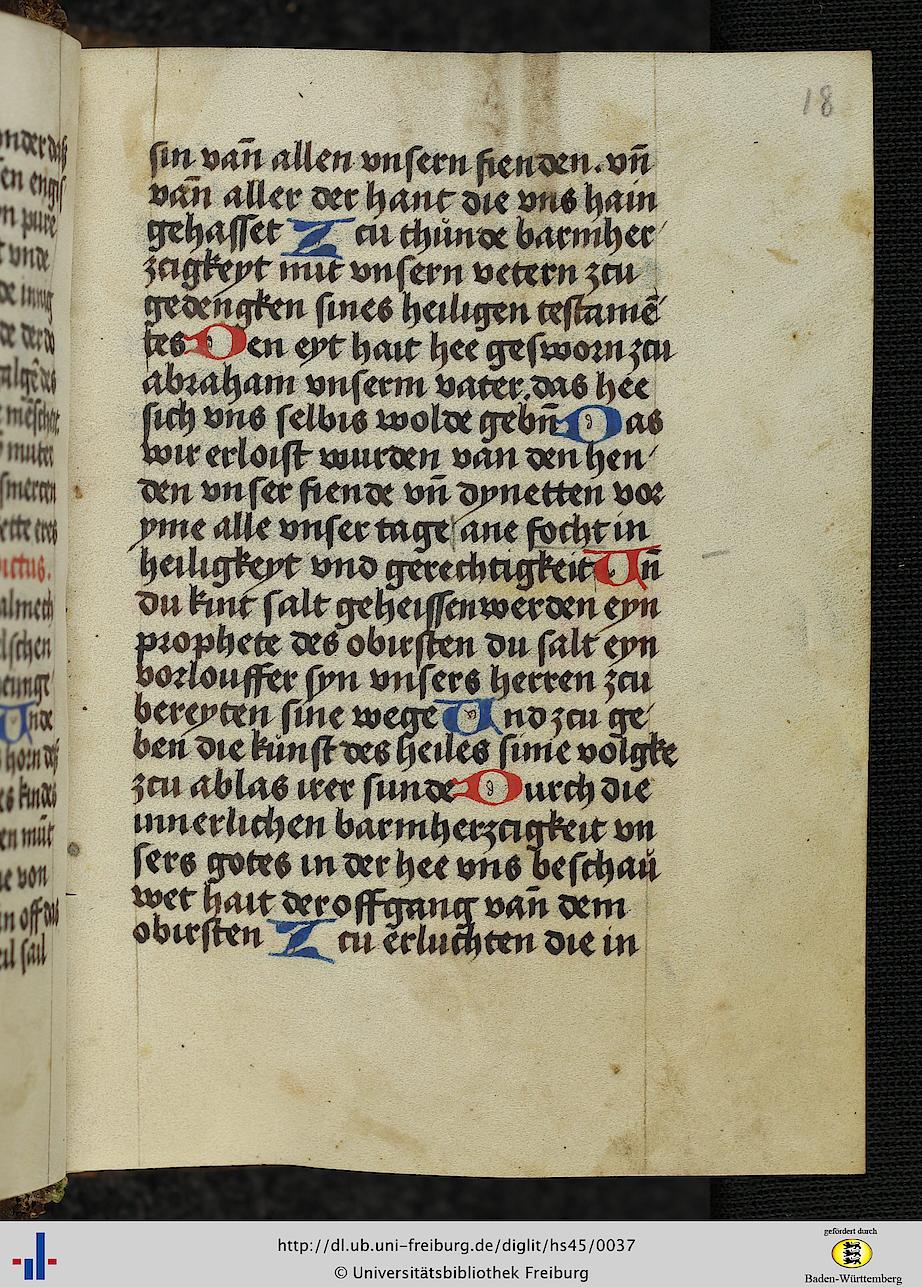 18
sin van̄ allen vnsern fienden. vn̄
van̄ aller der hant die vns hain
gehasset Z cu thůnde barmher
zcigkeyt mit vnsern vetern zcu
gedengken sines heiligen testamē
tes Den eyt hait hee gesworn zcu
abraham vnserm vater. das hee
sich vns selbis wolde gebn̄ Das
wir erloist wurden van den hen
den vnser fiende vn̄ dynetten vor
yme alle vnser tage ane focht in
heiligkeyt vnd gerechtigkeit Vn̄
du kint salt geheissen werden eyn
prophete des obirsten du salt eyn
vorlouffer syn vnsers herren zcu
bereyten sine wege Vnd zcu ge
ben die kůnst des heiles sime volgke
zcu ablas irer sunde Durch die
innerlichen barmherzcigkeit vn
sers gotes in der hee vns beschaů
wet hait der offgang van̄ dem
obirsten Z cu erluchten die in
onder das
en engis
n pure
vnde
de innig
de der do
mūter
smertzen
ctus.
almech
lschen
Vnde
horn des
es kindes
en mūt
e von
n off das
eil sail
http://dl.ub.uni-freiburg.de/diglit/hs45/0037
© Universitätsbibliothek Freiburg
gefördert durch
Baden-Württemberg